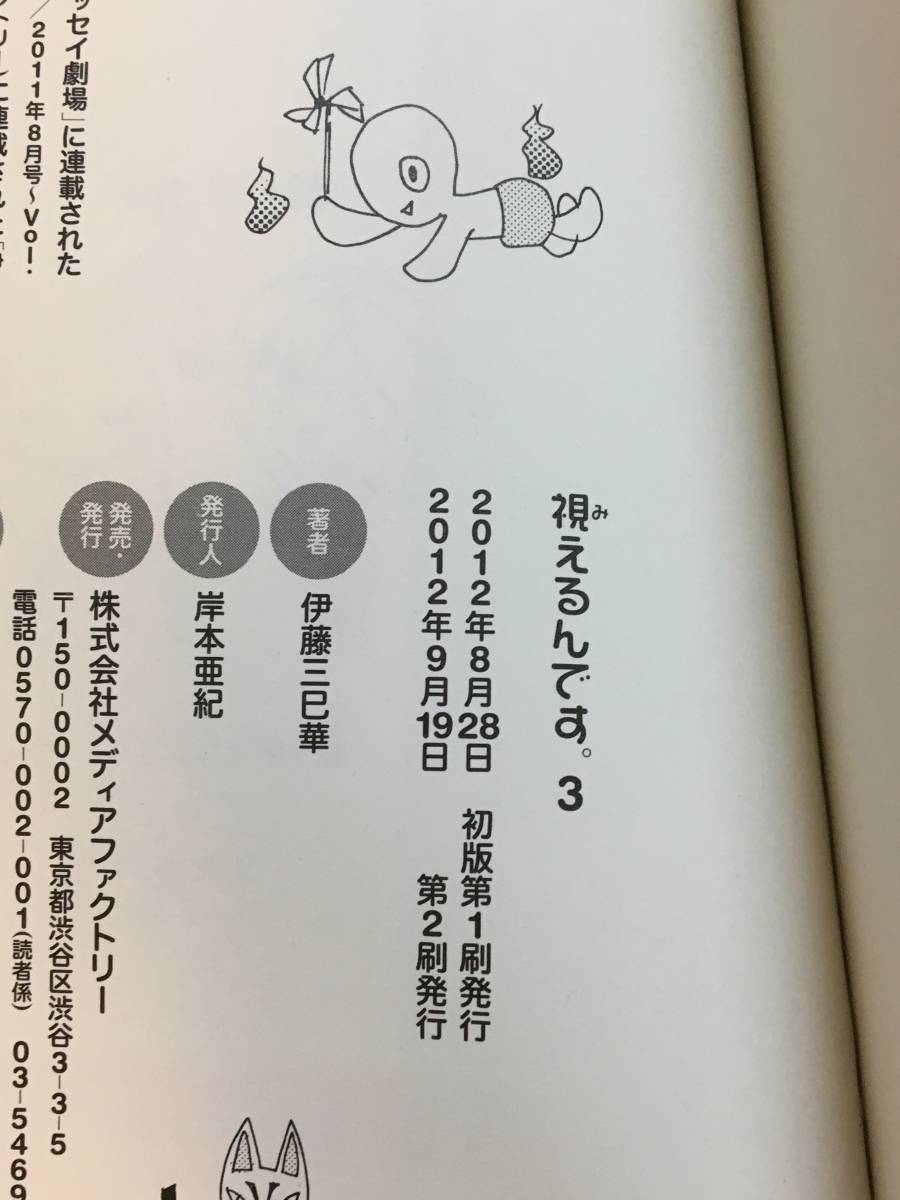 視えるんです。3
み
2012年8月28日 初版第1刷発行
2012年9月19日 第2刷発行
著者
伊藤三巳華
発行人
岸本亜紀
発売・
発行
株式会社メディアファクトリー
〒150-0002 東京都渋谷区渋谷3-3-5
電話0570-002-001(読者係) 03-5469
ッセイ劇場」に連載された
/2011年8月号~Vol.